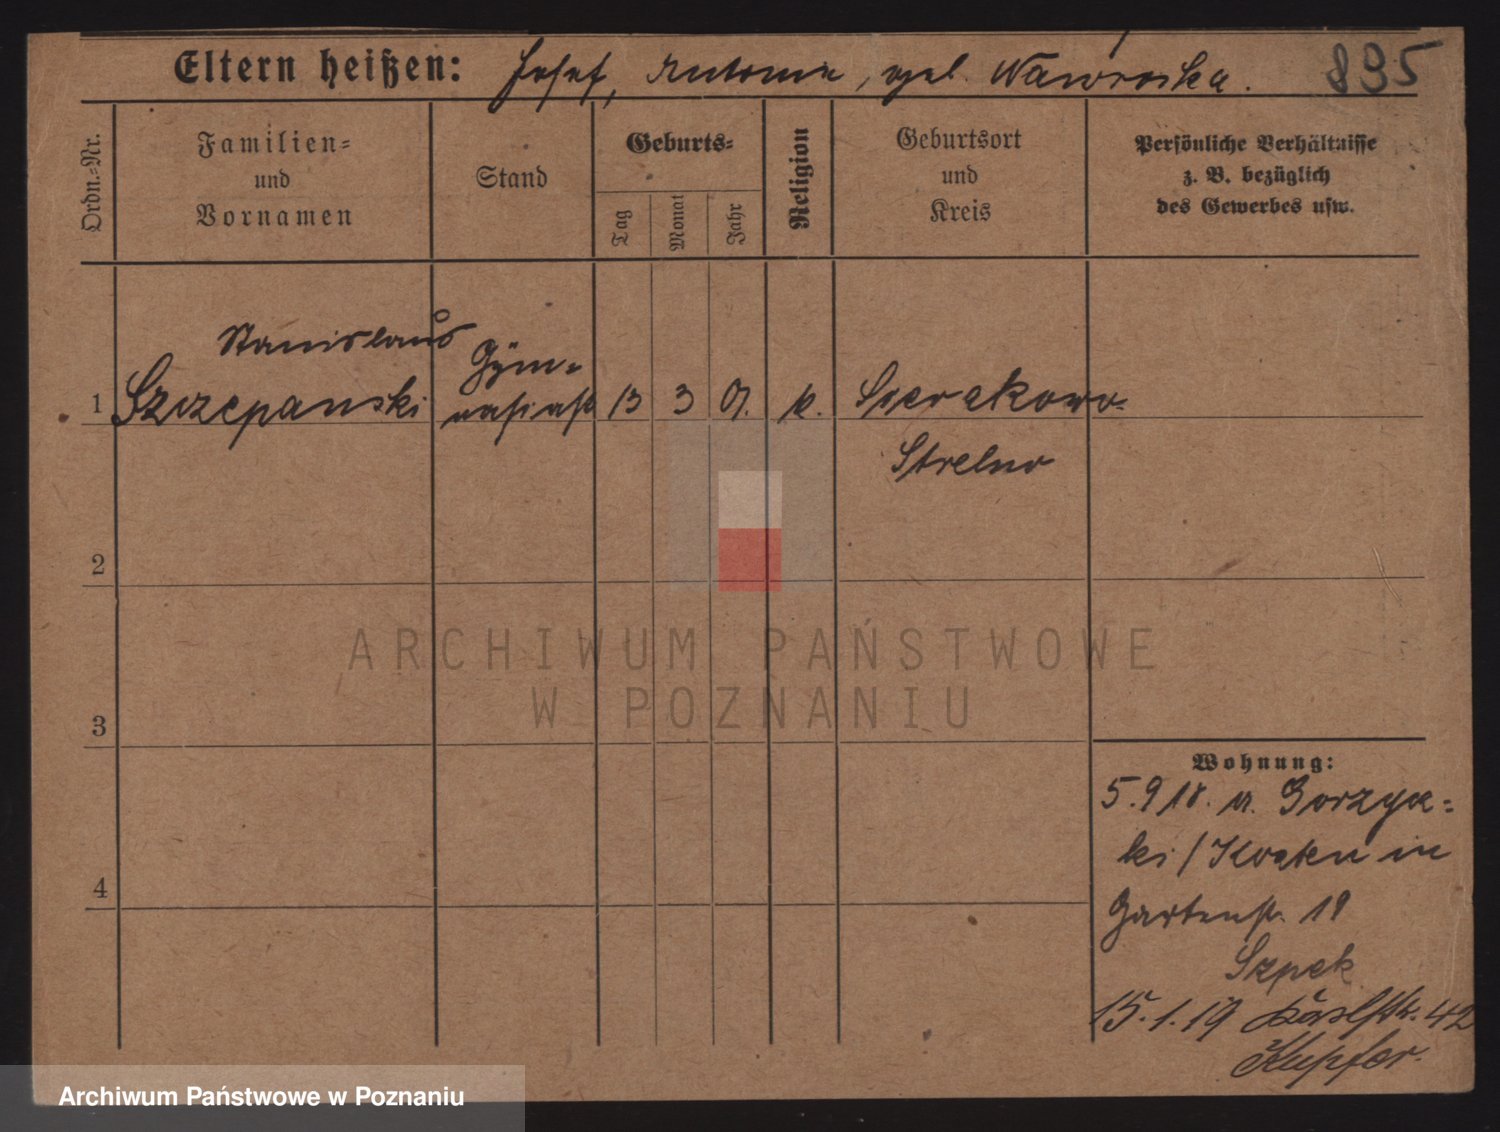 Eltern heißen: Josef, Antonie, geb. Wawroska. 895
Ordn.-Nr.
Familien-
und
Vornamen
Stand
Geburts-
Tag
Monat
Jahr
Religion
Geburtsort
und
Kreis
Persönliche Verhältnisse
z. B. bezüglich
des Gewerbes usw.
Stanislaus
1 Szczepanski
Gym-
nasiast
13 3 01. k.
Sierakowo-
Strelno
2
3
4
Wohnung:
5.9 18. a.
ki / Kosten in
Gartenstr. 19
Szpek
15.1.19 42
Kupfer.
ARCHIWUM PAŃSTWOWE
W POZNANIU
Archiwum Państwowe w Poznaniu